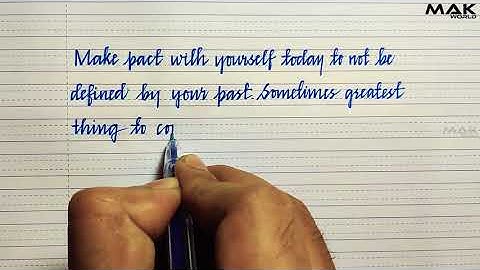 MAK
WORLD
Make pact with yourself today to not be
defined by your past. Sometimes greatest
thing to co
MAK WORLD